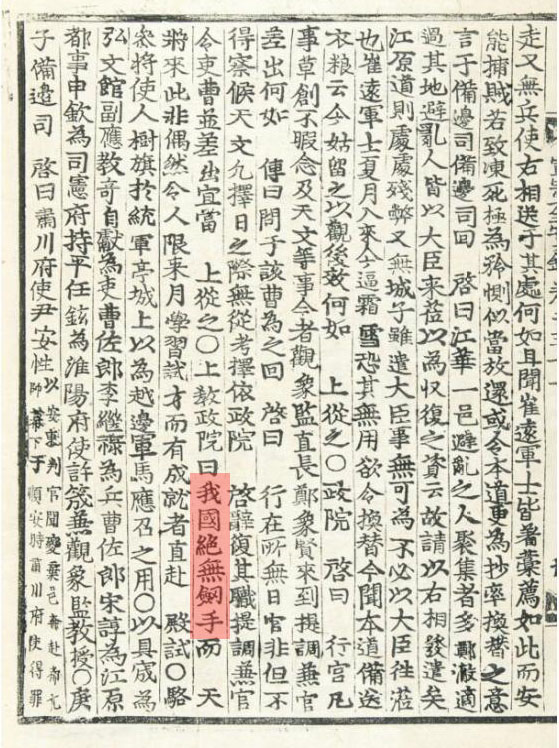 走又無兵使右相送于其處何如且聞崔遠軍士皆著藁薦如此而安
能捕賊若致凍死極為矜惻似當放還或令本道更為抄率換替之意
言于備邊司備邊司回 啓曰江華一邑避亂之人聚集者多鄭澈適
過其地避亂人皆以大臣來莅以為収復之資云故請以右相發遣矣
江原道則處處殘弊又無城子雖遣大臣事無可為不必以大臣往莅
也崔遠軍士夏月入來今逼霜雪恐其無用欲令換替今聞本道備送
衣粮云今姑留之以觀後效何如 上從之〇政院 啓曰 行宮凡
事草創不暇念及天文等事今者觀象監直長鄭象賢來到提調兼官
差出何如 傳曰問于該曹為之回 啓曰 行在所無日官非但不
得察候天文凡擇日之際無從考擇依政院 啓辭復其職提調兼官
令吏曹並差出宜當 上從之〇上敎政院曰我國絶無劒手而 天
將來此非偶然令人限來月學習試才而有成就者直赴 殿試〇駱
叅將使人樹旗於統軍亭城上以為越邊軍馬應召之用〇以具宬為
弘文館副應教奇自獻為吏曹佐郎李繼祿為兵曹佐郎宋諄為江原
都事申欽為司憲府持平任鉉為淮陽府使許筬兼觀象監教授〇庚
子備邊司 啓曰肅川府使尹安性以
安重判官聞變棄邑奔赴都元
帥幕下于順安時肅川府使得罪